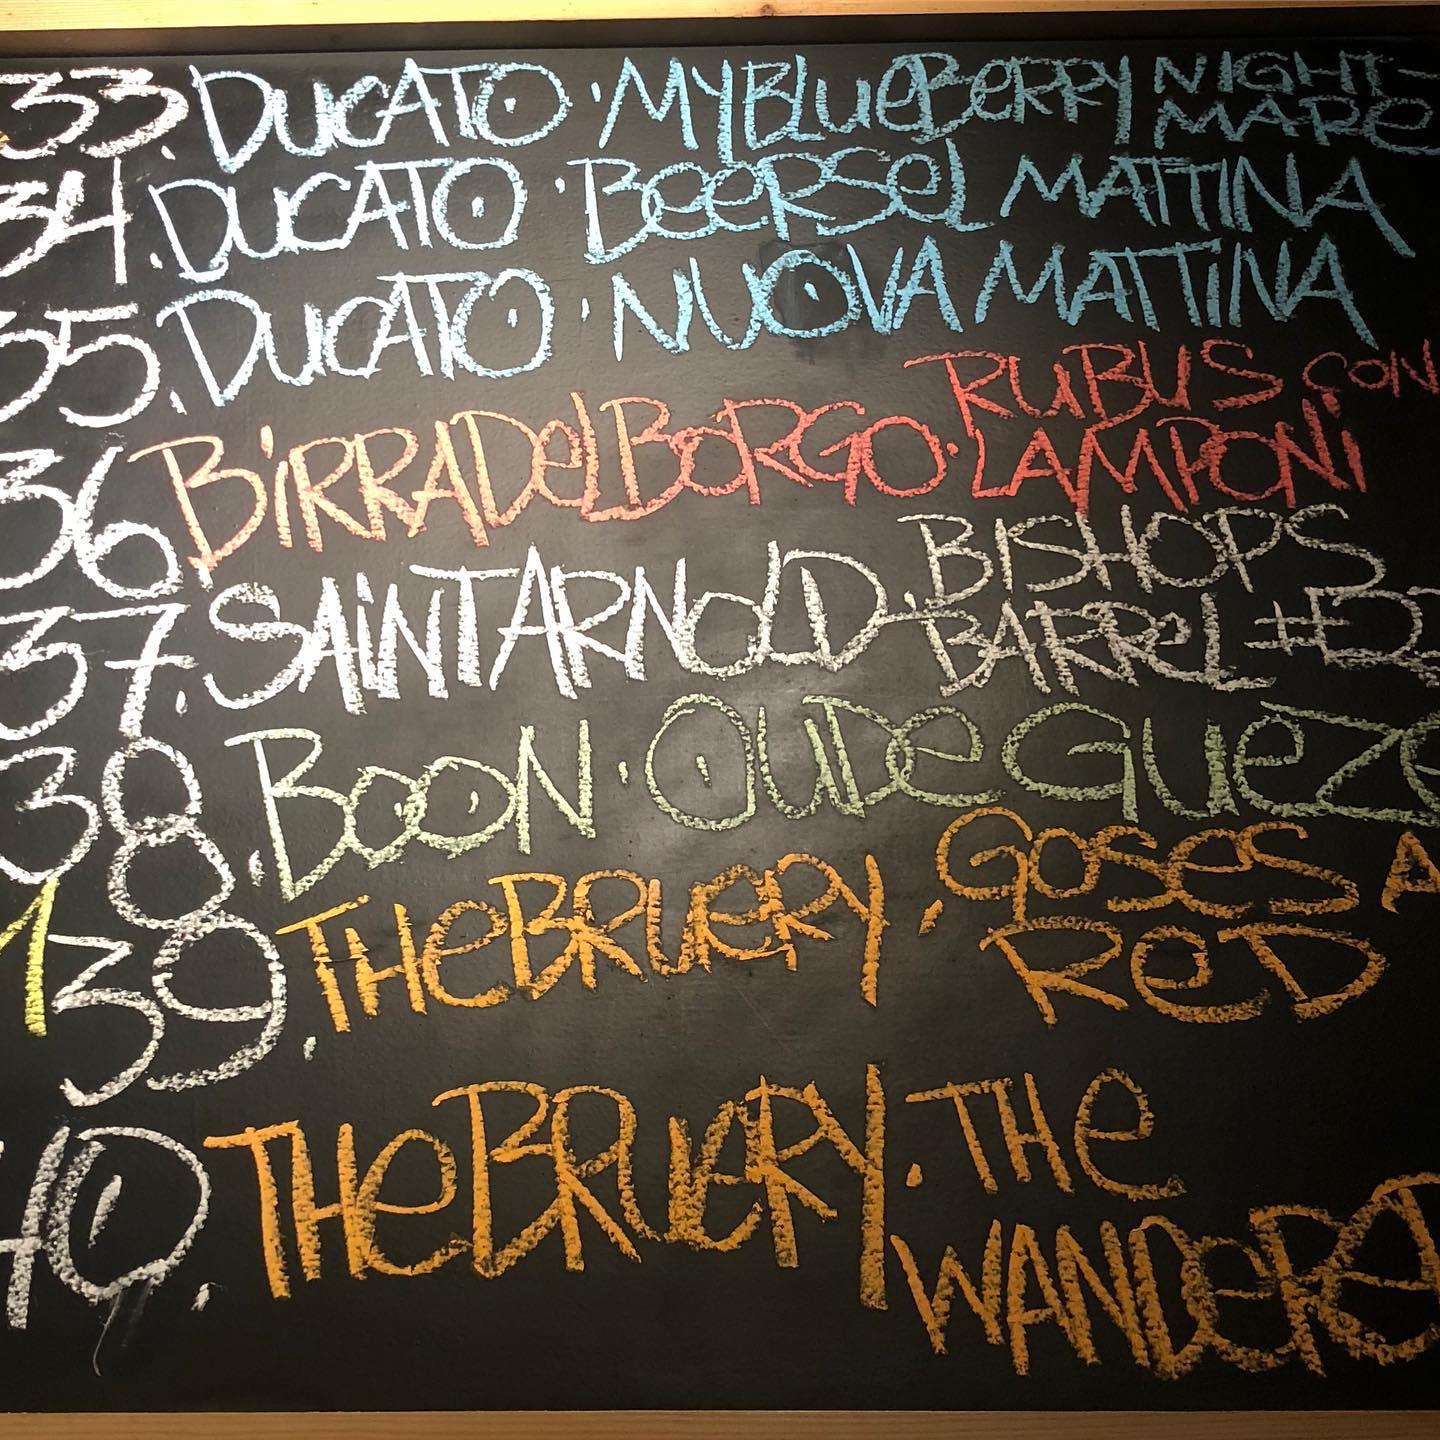 33. DUCATO · MY BLUEBERRY NIGHT-
MARE
34. DUCATO · BEERSEL MATTINA
35. DUCATO · NUOVA MATTINA
36. BIRRA DEL BORGO · RUBUS CON
LAMPONI
37. SAINT ARNOLD · BISHOPS
BARREL
38. BOON · OUDE GUEZE
39. THE BRUERY · GOSES A
RED
40. THE BRUERY · THE
WANDERER